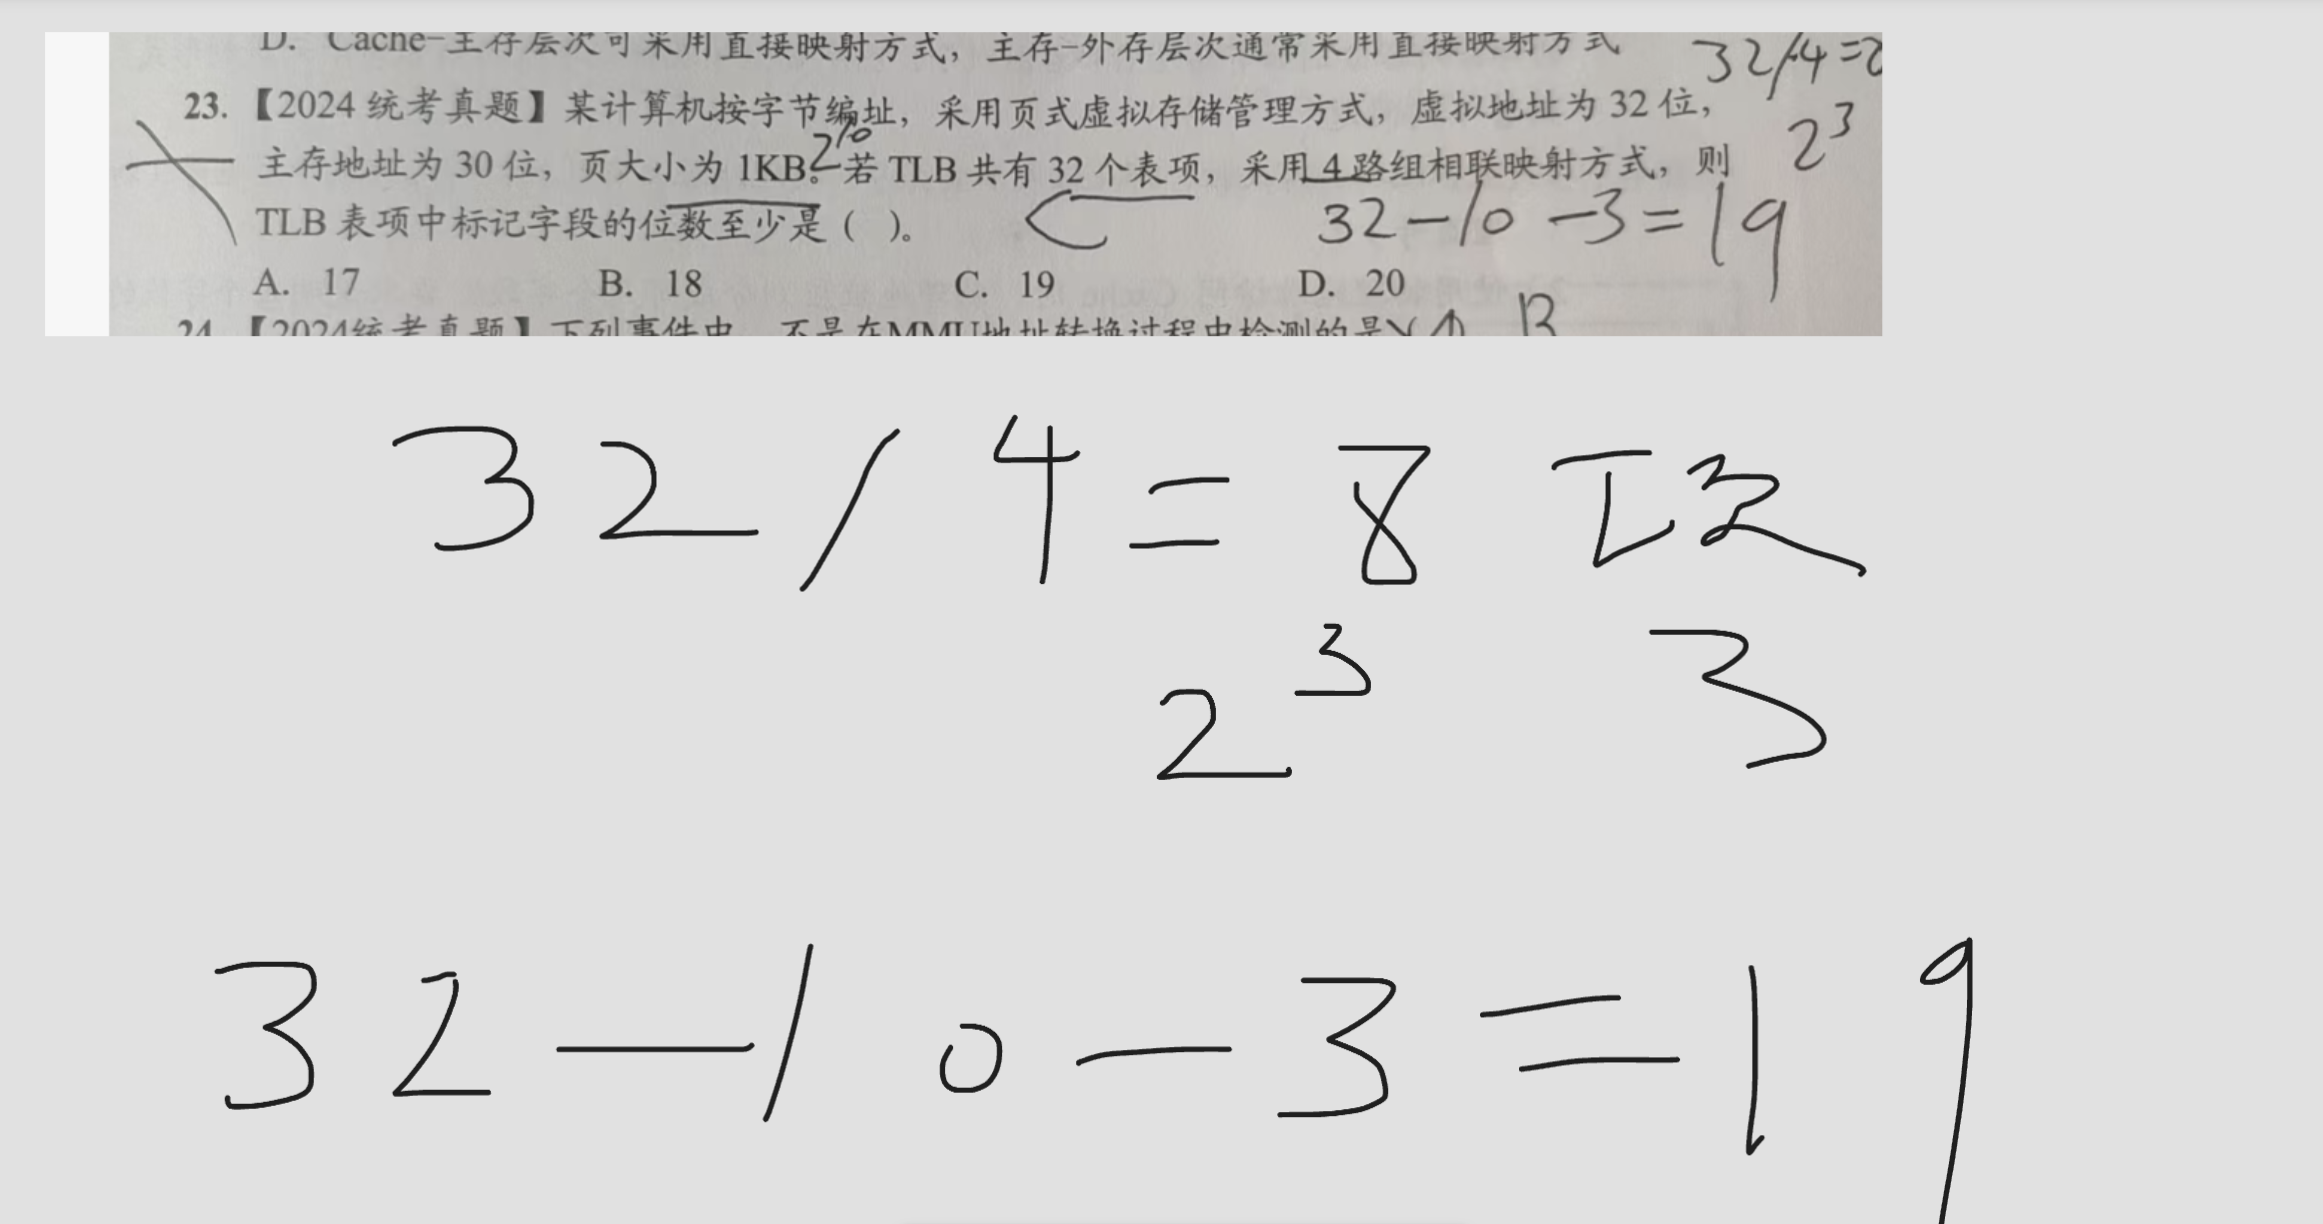 D. Cache-主存层次可采用直接映射方式，主存-外存层次通常采用直接映射方式
32/4=
23.【2024 统考真题】某计算机按字节编址，采用页式虚拟存储管理方式，虚拟地址为 32 位，
2^3
2^10
主存地址为 30 位，页大小为 1KB。若 TLB 共有 32 个表项，采用 4 路组相联映射方式，则
TLB 表项中标记字段的位数至少是（ ）。
32-10-3=19
A. 17 B. 18 C. 19 D. 20
B
24.【2024统考真题】下列事件中，不是在MMU地址转换过程中检测的是
32/4=8
2^3 3
32-10-3=19